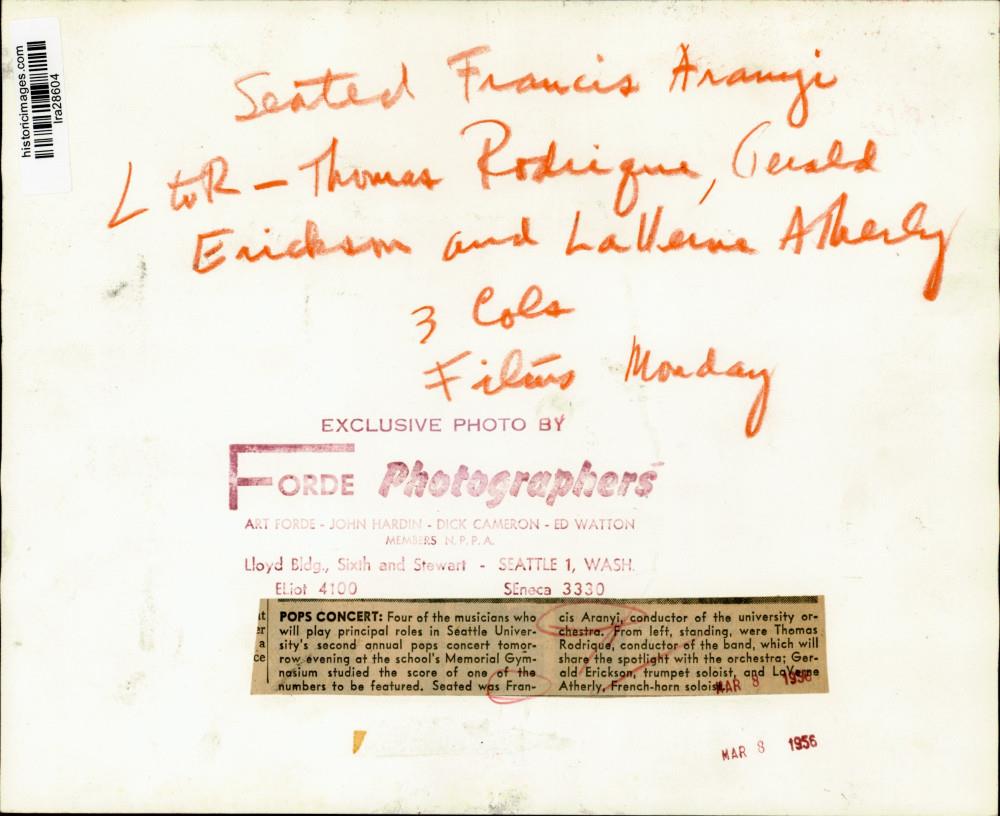 historicimages.com
lra28604
Seated Francis Aranyi
L to R - Thomas Rodrique, Gerald
Erickson and LaVerne Atherly
3 Cols
Films Monday
EXCLUSIVE PHOTO BY
FORDE Photographers
ART FORDE - JOHN HARDIN - DICK CAMERON - ED WATTON
MEMBERS N.P.P.A.
Lloyd Bldg., Sixth and Stewart - SEATTLE 1, WASH.
ELiot 4100 SEneca 3330
POPS CONCERT: Four of the musicians who
will play principal roles in Seattle Univer-
sity's second annual pops concert tomor-
row evening at the school's Memorial Gym-
nasium studied the score of one of the
numbers to be featured. Seated was Fran-
cis Aranyi, conductor of the university or-
chestra. From left, standing, were Thomas
Rodrique, conductor of the band, which will
share the spotlight with the orchestra; Ger-
ald Erickson, trumpet soloist, and LaVerne
Atherly, French-horn soloist.
MAR 8 1956
MAR 8 1956